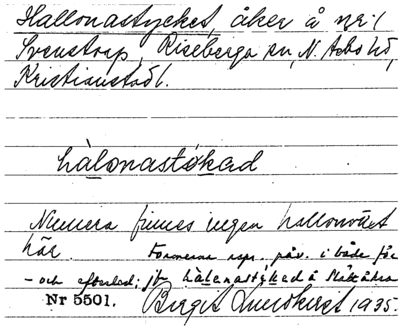 Hallonastycket, åker å nr 1
Svenstorp, Riseberga sn, N. Åsbo hd,
Kristianstadl.
hàlonastýkad
Numera finnes ingen hallonväxt
här. Formerna repr. påv. i både för
- och efterled; jfr hàlanastýkad å
Nr 5501. Birgit Lundkvist 1935.